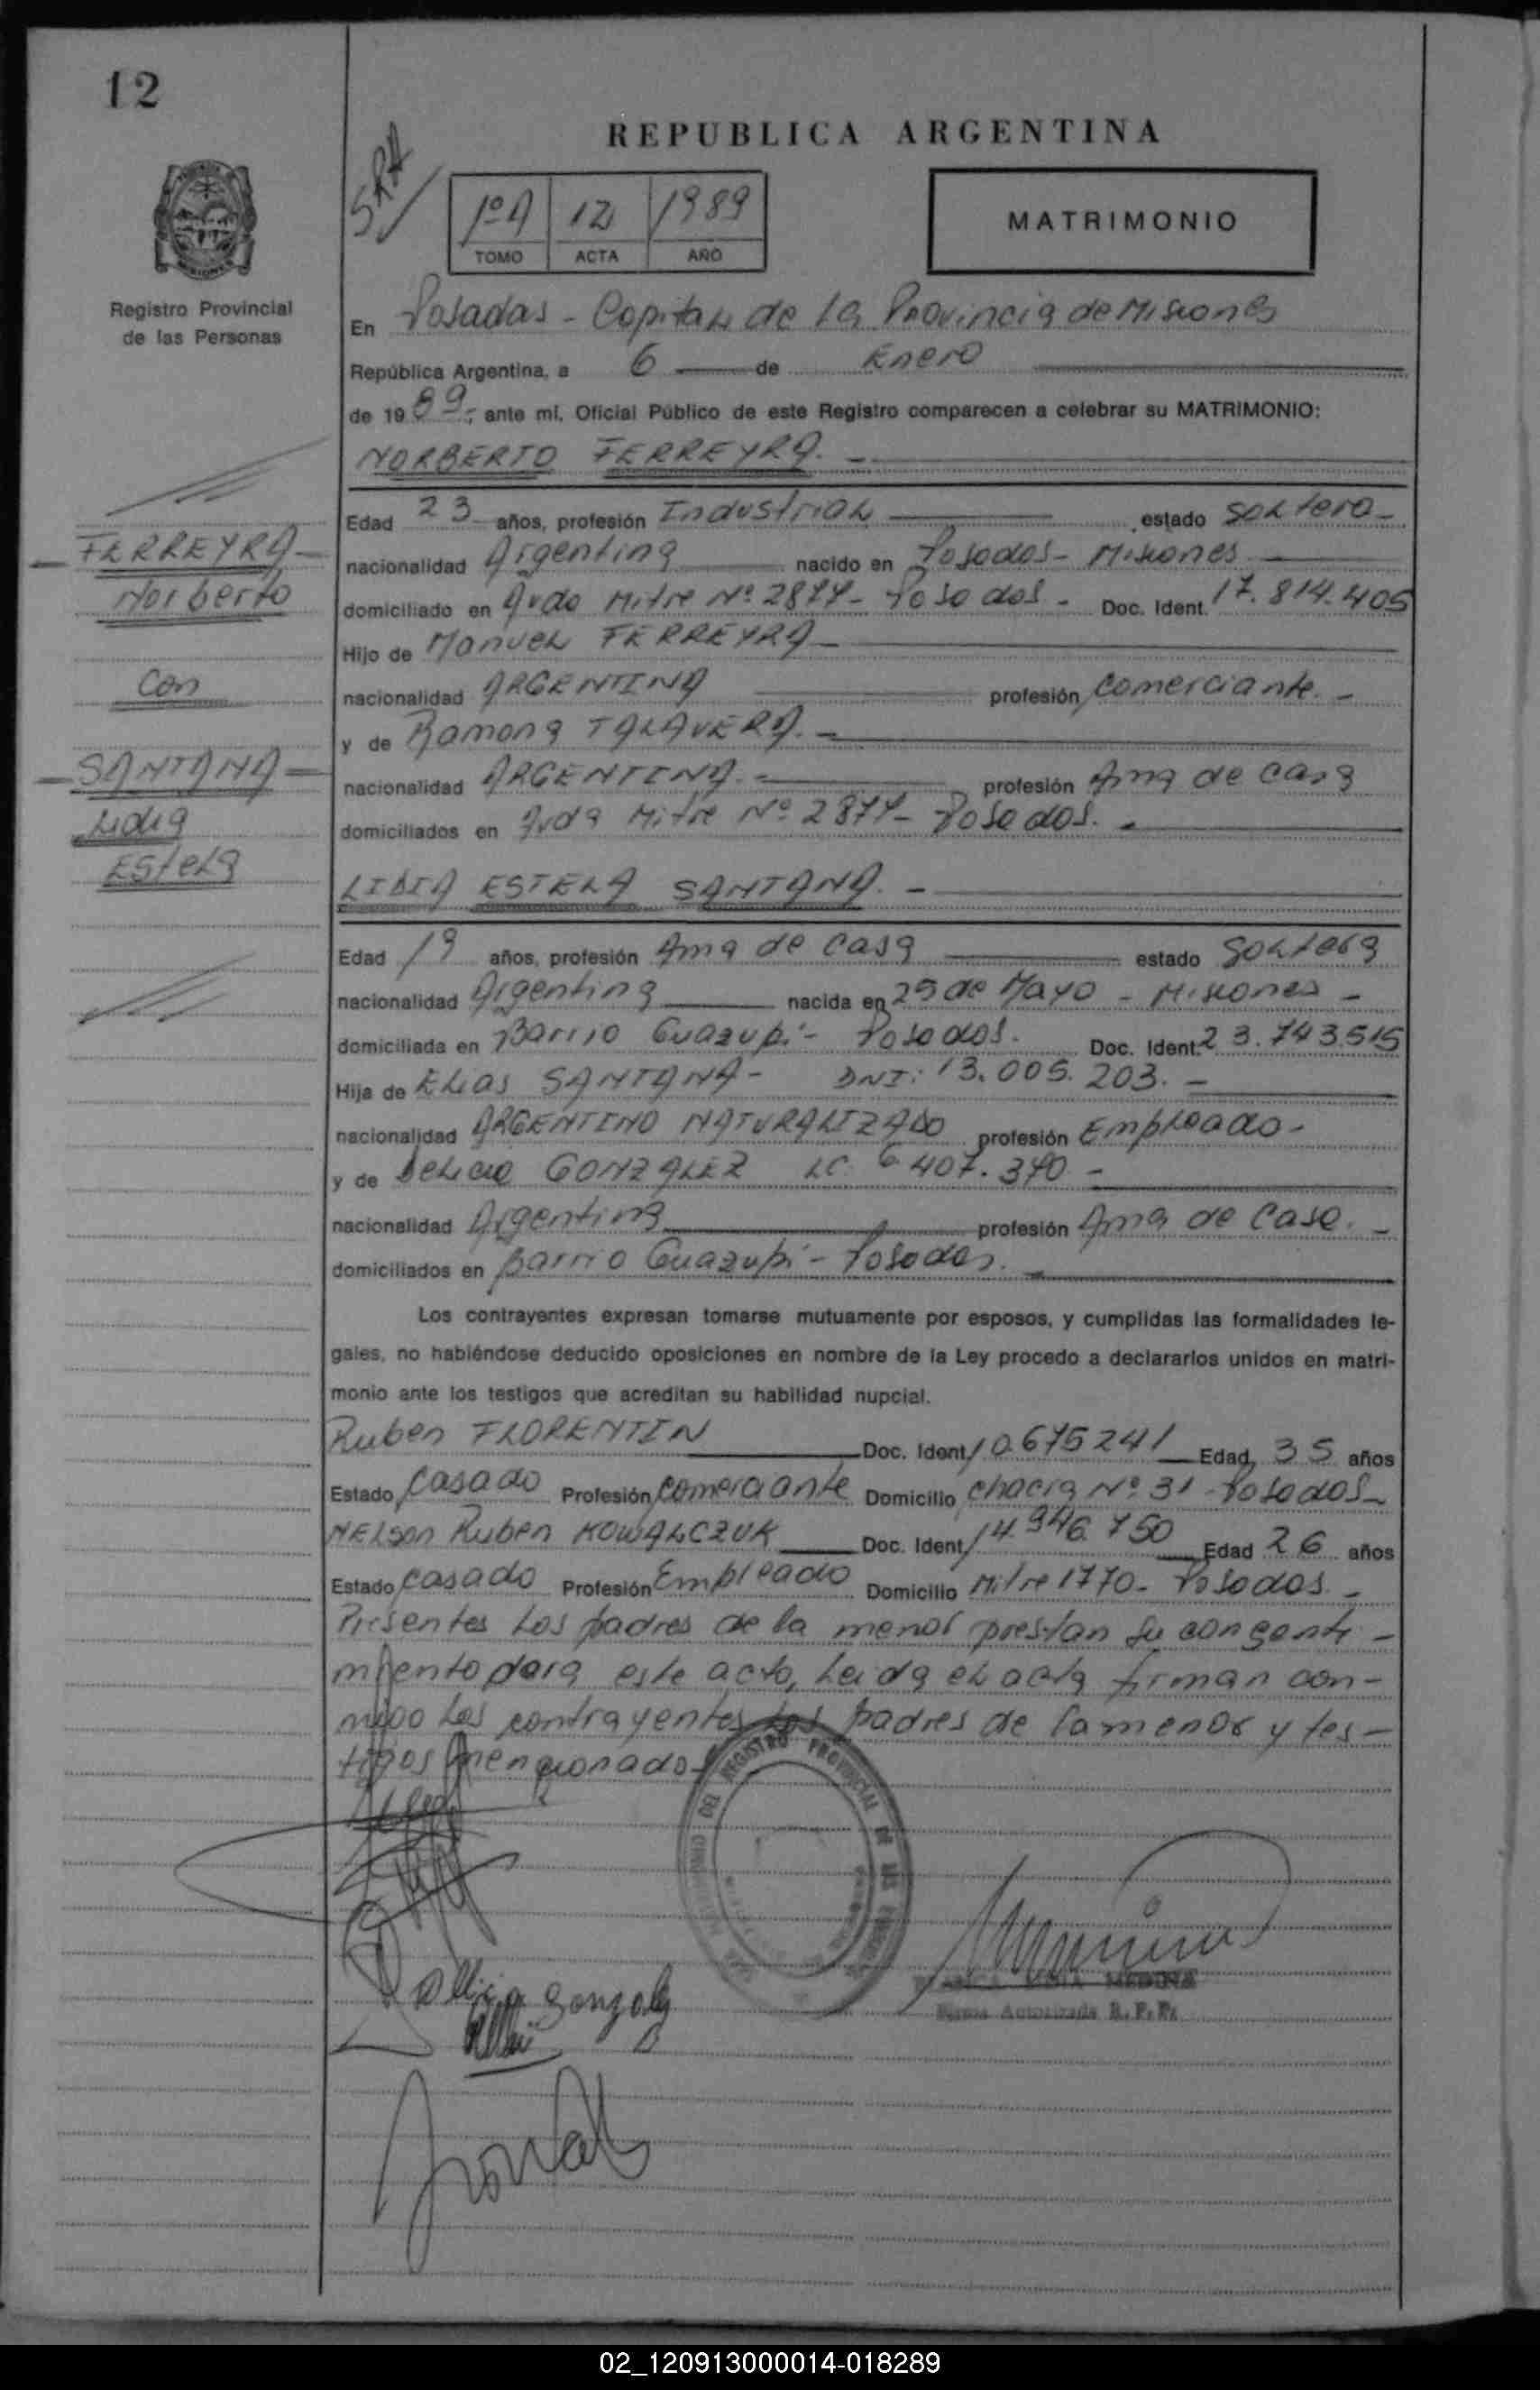 12
REPUBLICA ARGENTINA
SRA
1º A 12 1989
TOMO ACTA AÑO
MATRIMONIO
Registro Provincial
de las Personas
En Posadas - Capital de la Provincia de Misiones
República Argentina, a 6 de Enero
de 1989.- ante mi, Oficial Público de este Registro comparecen a celebrar su MATRIMONIO:
NORBERTO FERREYRA. -
FERREYRA
Norberto
Con
SANTANA
Lidia
Estela
Edad 23 años, profesión Industrial estado soltero -
nacionalidad Argentina nacido en Posadas - Misiones
domiciliado en Avda Mitre Nº 2877 - Posadas - Doc. Ident. 17.814.405
Hijo de Manuel FERREYRA -
nacionalidad ARGENTINA profesión comerciante. -
y de Ramona TALAVERA. -
nacionalidad ARGENTINA. - profesión Ama de casa
domiciliados en Avda Mitre Nº 2877 - Posadas. -
LIDIA ESTELA SANTANA. -
Edad 19 años, profesión Ama de casa estado soltera
nacionalidad Argentina nacida en 25 de Mayo - Misiones -
domiciliada en Barrio Guazupi - Posadas. Doc. Ident. 23.743.515
Hija de Elias SANTANA - DNI: 13.005.203. -
nacionalidad ARGENTINO NATURALIZADO profesión Empleado -
y de Delicia GONZALEZ LC. 6.407.370 -
nacionalidad Argentina profesión Ama de casa. -
domiciliados en Barrio Guazupi - Posadas. -
Los contrayentes expresan tomarse mutuamente por esposos, y cumplidas las formalidades le-
gales, no habiéndose deducido oposiciones en nombre de la Ley procedo a declararlos unidos en matri-
monio ante los testigos que acreditan su habilidad nupcial.
Ruben FLORENTIN Doc. Ident. 10.675241 Edad 35 años
Estado Casado Profesión comerciante Domicilio chacra Nº 31 - Posadas -
NELSON Ruben KOWALCZUK Doc. Ident. 14.946.750 Edad 26 años
Estado casado Profesión Empleado Domicilio Mitre 1770 - Posadas. -
Presentes los padres de la menor prestan su consenti -
miento para este acto, Leida el acta firman con -
migo los contrayentes, los padres de la menor y tes -
tigos mencionados
DEL REGISTRO PROVINCIAL DE LAS PERSONAS
Gonzalez
MEDINA
Firma Autorizada R. P. P.
02_120913000014-018289